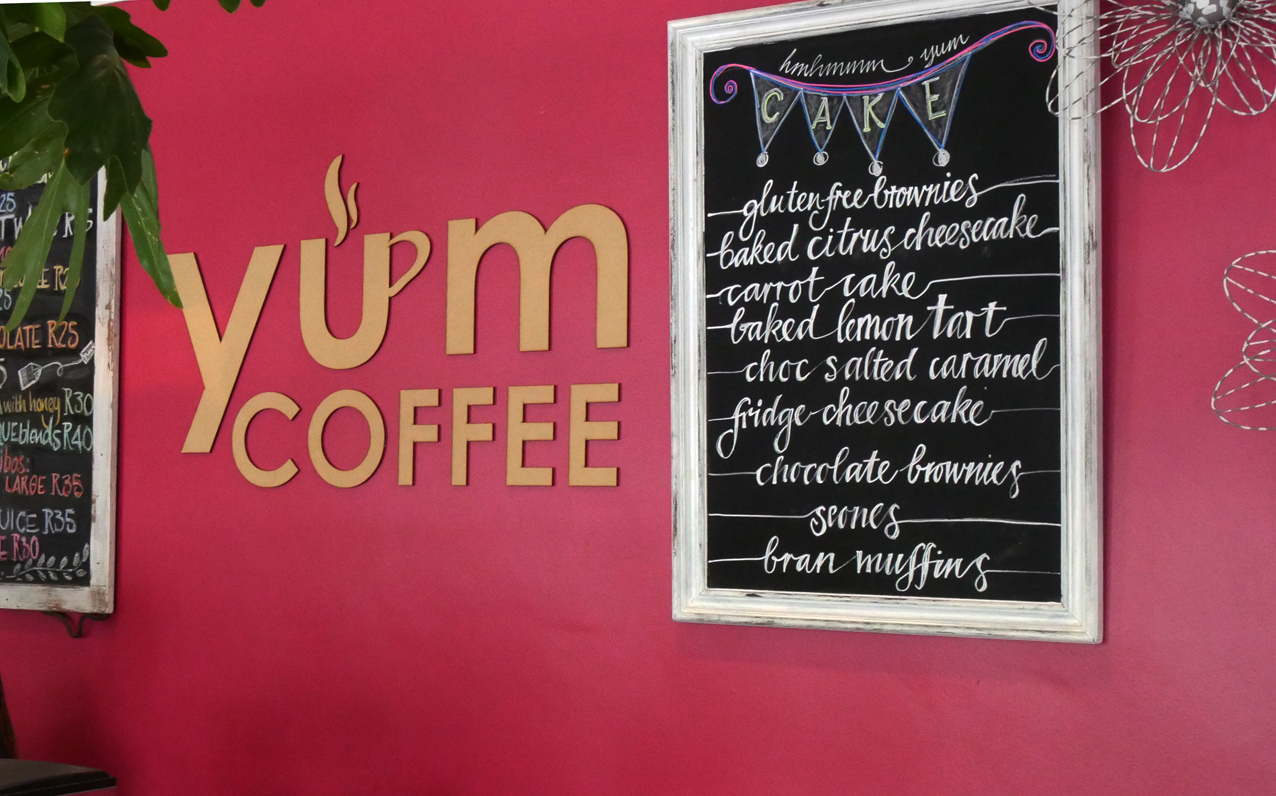 25
R25
OLATE R25
with honey R30
blends R40
LARGE R35
UICE R35
R30
yum
COFFEE
hmhmmm yum
CAKE
gluten-free brownies
baked citrus cheesecake
carrot cake
baked lemon tart
choc salted caramel
fridge cheesecake
chocolate brownies
scones
bran muffins